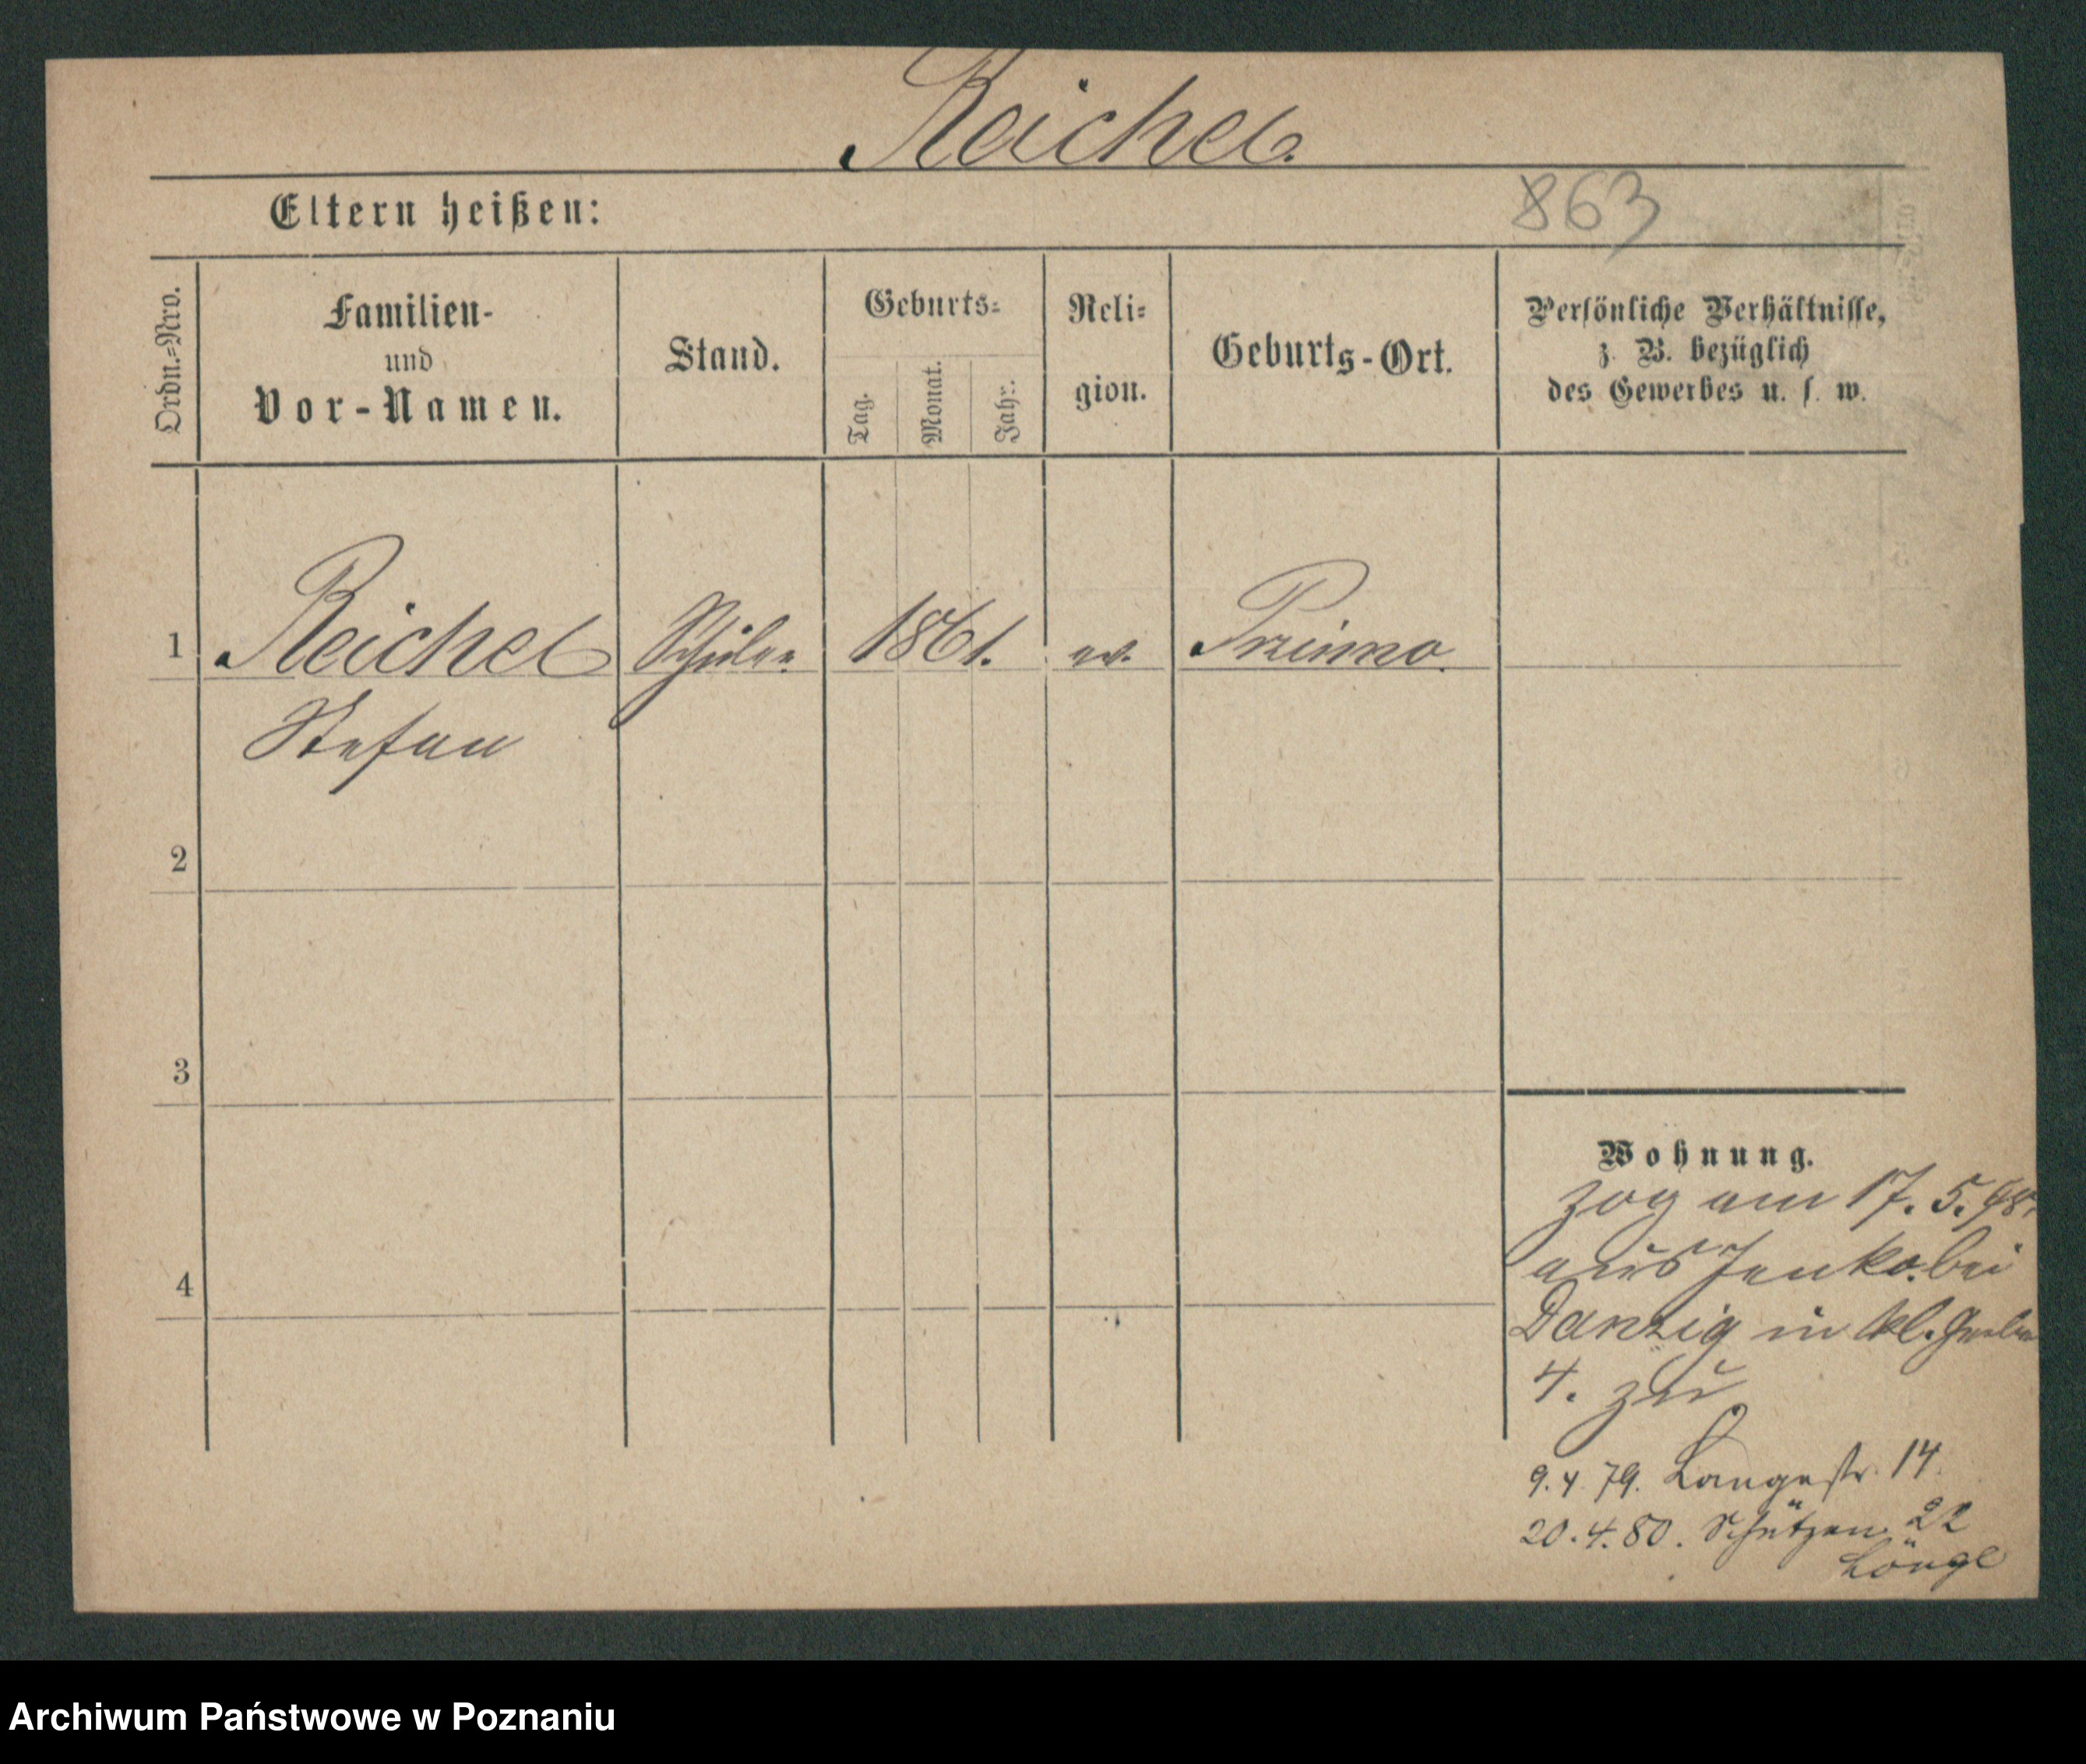 Reichel.
Eltern heißen:
863
Ordn.=Nro.
Familien-
und
Vor-Namen.
Stand.
Geburts=
Tag.
Monat.
Jahr.
Reli=
gion.
Geburts-Ort.
Persönliche Verhältnisse,
z. B. bezüglich
des Gewerbes u. s. w.
1 Reichel Schüler 1861. ev.
Stefan
2
3
4
Wohnung.
zog am 17. 5. 78.
aus Jenkau bei
Danzig in kl. Gerber
4. zu
9. 4. 79. Langestr. 14.
20. 4. 80. Schützen 22
Archiwum Państwowe w Poznaniu